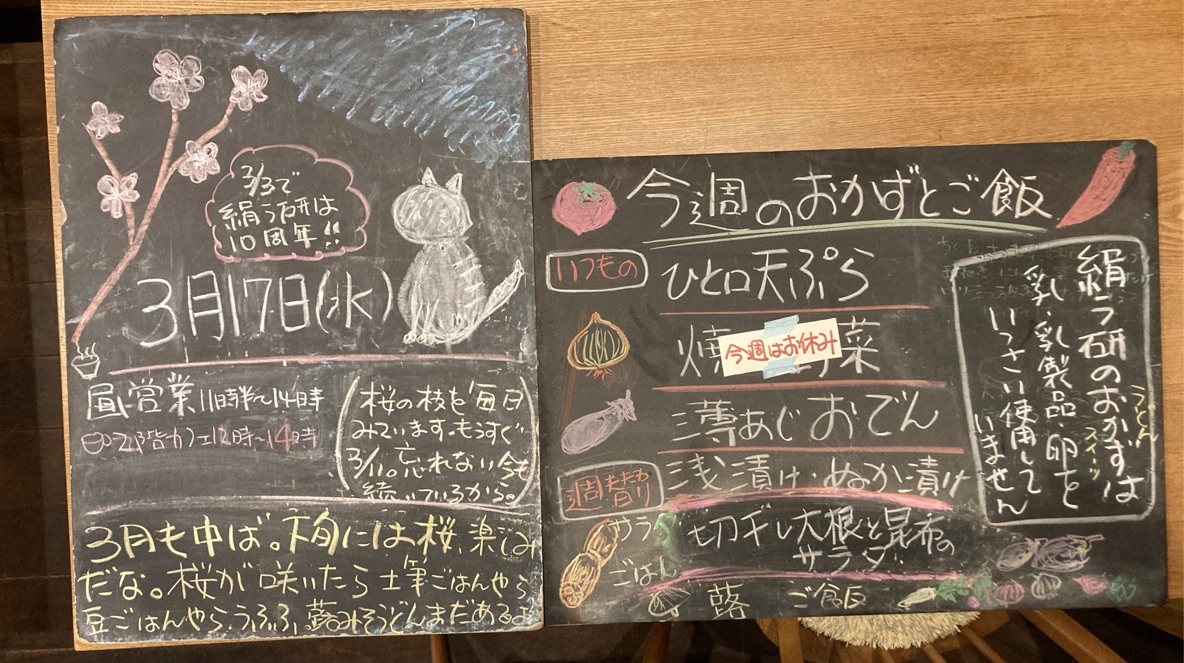 3/3で
絹う研は
10周年!!
3月17日(水)
昼営業 11時半〜14時
2階カフェ12時〜14時
(桜の枝を毎日
みています。もうすぐ
3/11。忘れない今も
続いているから。)
3月も中ば。下旬には桜、楽しみ
だな。桜が咲いたら土筆ごはんやら
豆ごはんやら、うふふ、蕗みそうどんまだあるよ
今週のおかずとご飯
いつもの
ひと口天ぷら
焼 菜
今週はお休み
薄あじおでん
浅漬け・ぬか漬け
週替わり
サラダ
切干し大根と昆布の
サラダ
ごはん
蕗 ご飯
絹う研のおかずは
うどん
スイーツ
乳・乳製品・卵を
いっさい使用して
いません